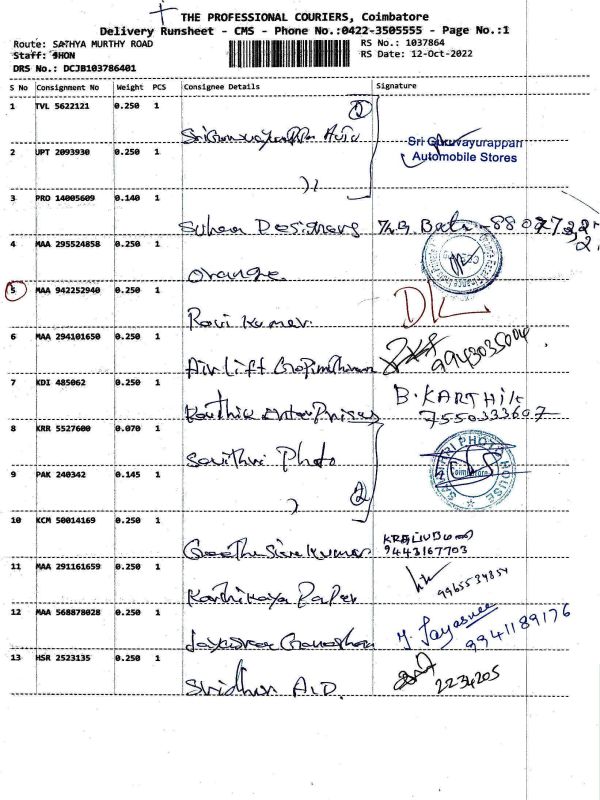 THE PROFESSIONAL COURIERS, Coimbatore
Delivery Runsheet - CMS - Phone No.:0422-3505555 - Page No.:1
Route: SATHYA MURTHY ROAD
RS No.: 1037864
Staff: JHON
RS Date: 12-Oct-2022
DRS No.: DCJB103786401
S No Consignment No Weight PCS Consignee Details Signature
1 TVL 5622121 0.250 1
Sri Guruvayurappan
Automobile Stores
2 UPT 2093930 0.250 1
3 PRO 14005609 0.140 1
Suhaa Designers
4 MAA 295524858 0.250 1
Orange
5 MAA 942252940 0.250 1
Ravi Kumar
6 MAA 294101650 0.250 1
Air Lift 9943035004
7 KDI 485062 0.250 1
Karthik Enterprises B. KARTHIK
7550333607
8 KRR 5527600 0.070 1
Savithri Photo
9 PAK 240342 0.145 1
2
10 KCM 50014169 0.250 1
Geetha Sivakumar
9443167703
11 MAA 291161659 0.250 1
Karthikaya Paper
12 MAA 568878028 0.250 1
Jayasree
9941189176
13 HSR 2523135 0.250 1
Sridhar A.D. 2234205
SAVITHRI PHOTO HOUSE
Coimbatore